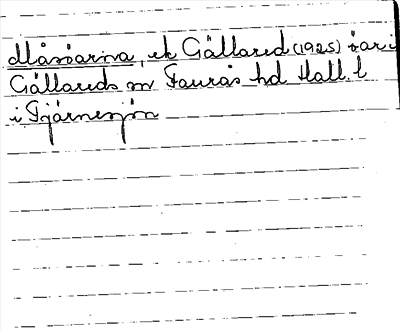 Måsöarna, ek Gällared (1925) öar i
Gällareds sn Faurås hd Hall. l
i Fjärnesjön